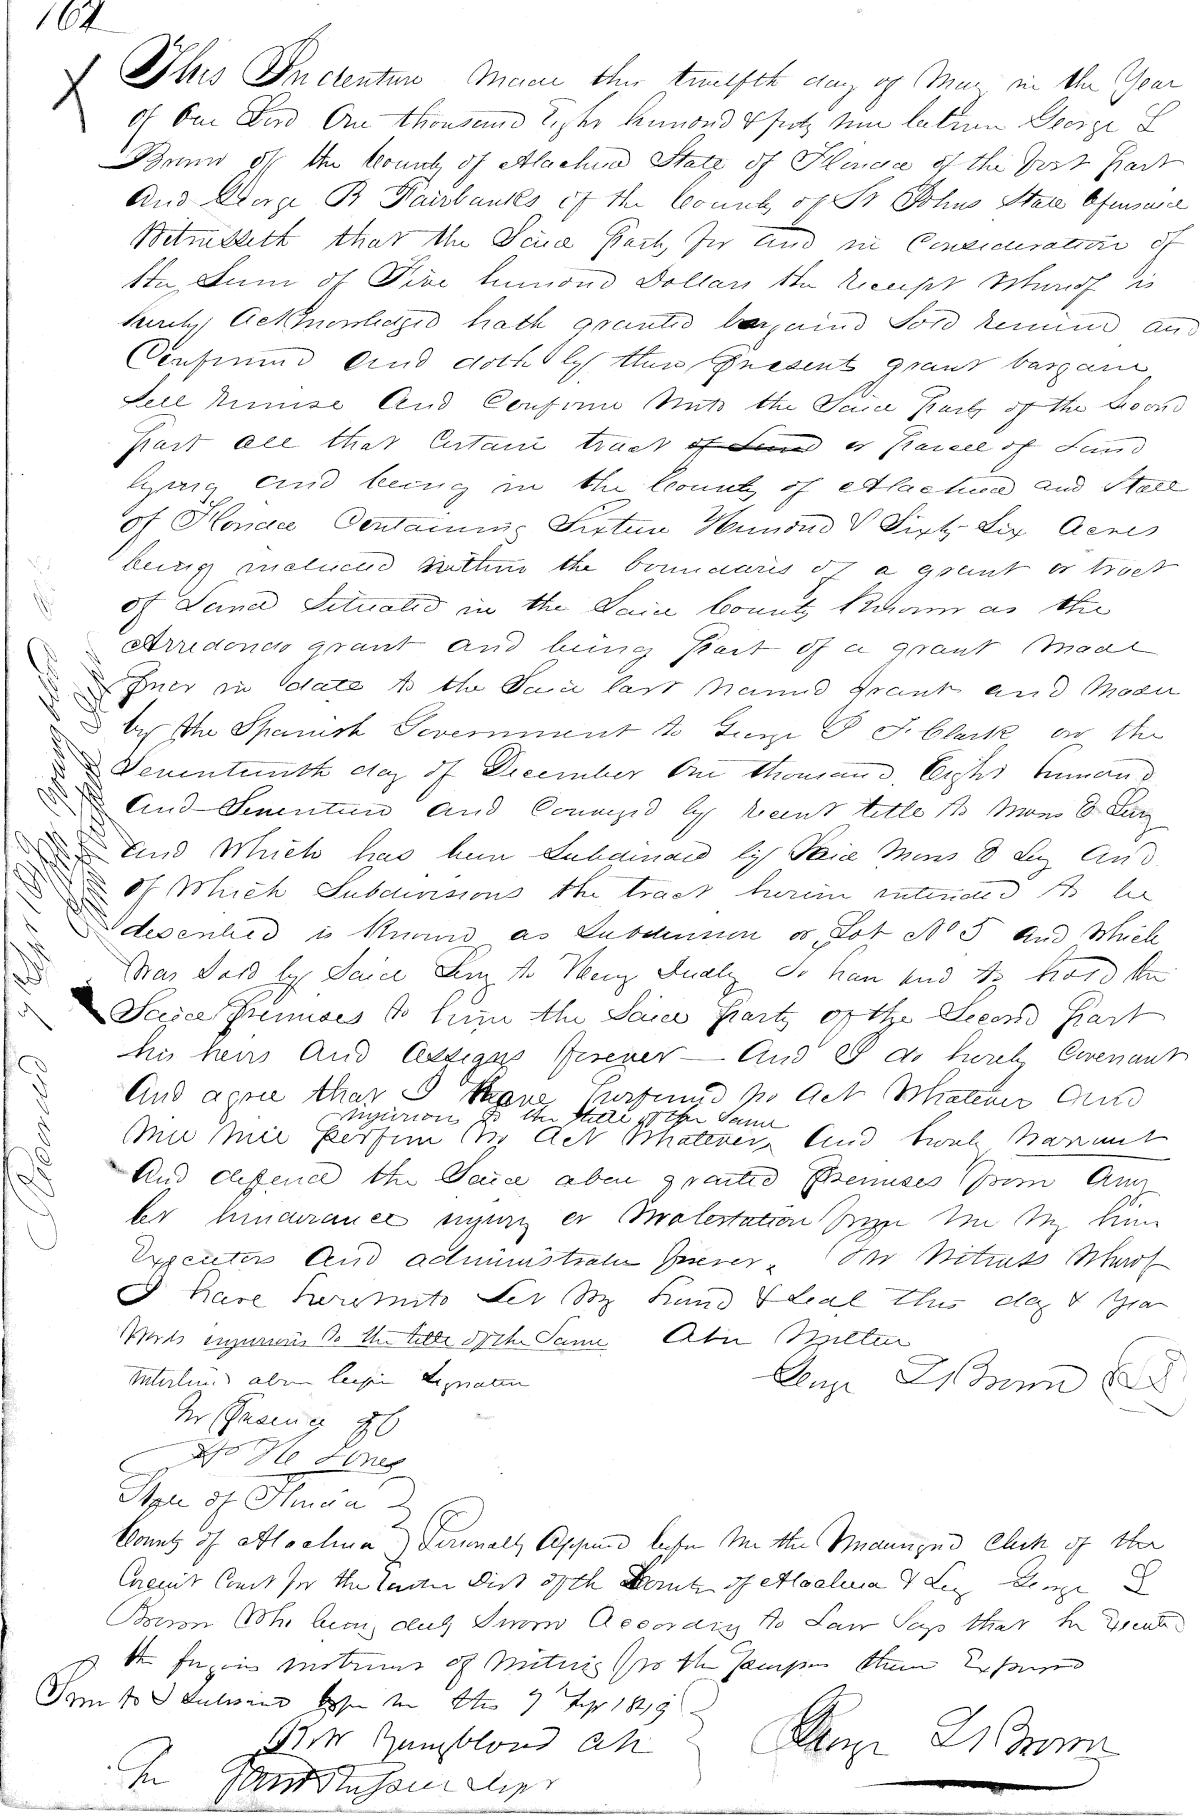 164
This Indenture Made this twelfth day of May in the Year
of Our Lord One thousand Eight hundred & forty nine between George L
Brown of the County of Alachua State of Florida of the first part
And George R Fairbanks of the County of St Johns State aforesaid
Witnesseth that the Said Party for and in Consideration of
the Sum of Five hundred Dollars the receipt Whereof is
hereby Acknowledged hath granted bargained Sold remised and
Confirmed and doth by these Presents grant bargain
Sell remise And Confirm Unto the Said Party of the Second
Part all that Certain tract of Land or Parcel of Land
lying and being in the County of Alachua and State
of Florida Containing Sixteen Hundred & Sixty Six Acres
being included within the boundaries of a grant or tract
of Land Situated in the Said County Known as the
Arredondo grant and being Part of a grant Made
Prior in date to the Said last named grant and Made
by the Spanish Government to George J F Clark on the
Seventeenth day of December One thousand Eight hundred
And Seventeen and Conveyed by recent title to Moses E Levy
and Which has been Subdivided by Said Moses E Levy And
of Which Subdivisions the tract herein intended to be
described is Known as Subdivision or Lot No 5 and Which
Was Sold by Said Levy to Henry Dudly To have and to hold the
Said Premises to him the Said Party of the Second Part
his heirs And Assigns forever — And I do hereby Covenant
And agree that I have Performed no Act Whatever And
injurious to the title of the Same
Will Perform No Act Whatever, And hereby Warrant
And defend the Said above granted Premises from Any
let hinderance injury or Molestation from Me My heirs
Executors And administrators forever. In Witness Whereof
I have hereunto Set My hand & Seal this day & Year
Words injurious to the title of the Same Above Written
interlined above before Signature George L Brown
In Presence of
H Jones
State of Florida
County of Alachua Personally Appeared before Me the Undersigned Clerk of the
Circuit Court for the Eastern Dist of the County of Alachua & Levy George L
Brown Who being duly Sworn According to Law Says that he Executed
the foregoing instrument of Writing for the Purposes therein Expressed
Sworn to & Subscribed before me this 7th Sept 1849
R W Youngblood Clk George L Brown
Dept
Recorded 7 Sept 1849
Youngblood Clk
Dept